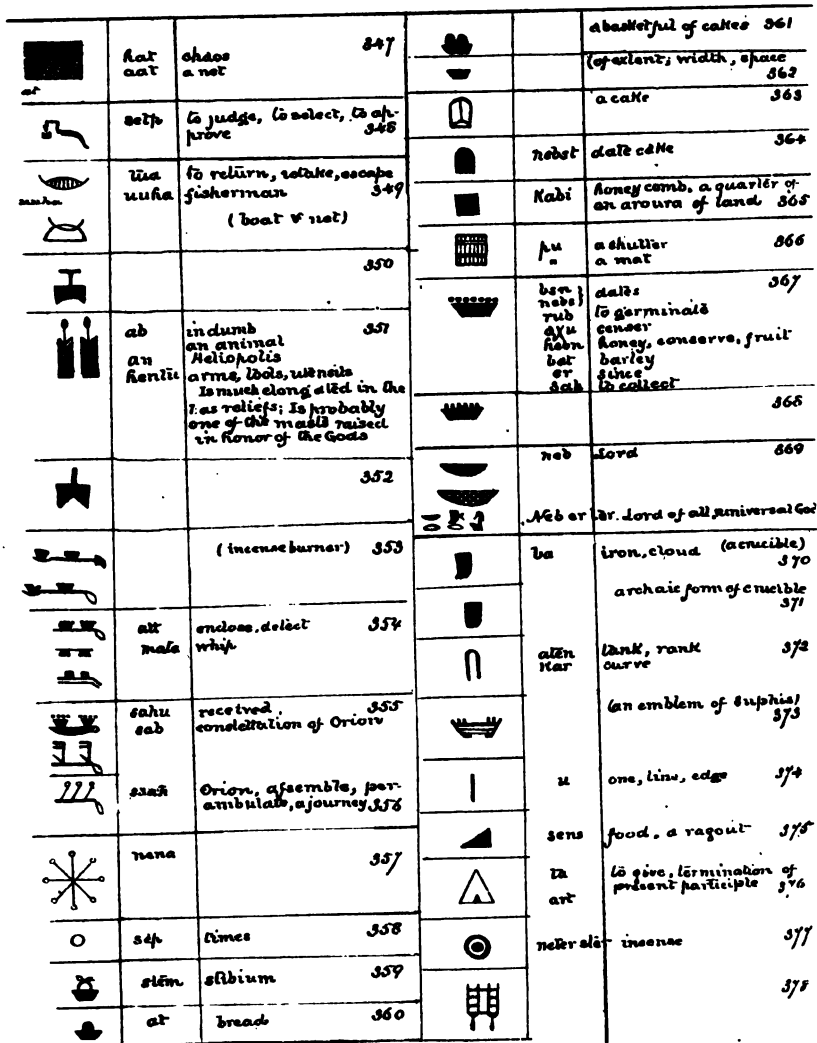 hat chaos 347
aat a net
at
setp to judge, to select, to ap-
prove 348
to return, retake, escape
uuha fisherman 349
(boat & net)
350
ab in dumb 351
an animal
an Heliopolis
arms, tools, utensils
Is much elongated in the
reliefs; Is probably
one of the masts raised
in honor of the Gods
352
(incense burner) 353
enclose, detect 354
mata whip
sahu received, 355
sab constellation of Orion
Orion, assemble, per-
ambulate, a journey 356
nana 357
sep times 358
stem stibium 359
at bread 360
a basketful of cakes 361
(of extent; width, space
362
a cake 363
nebst date cake 364
Kabi honey comb, a quarter of
an aroura of land 365
pu a shutter 366
" a mat
ben } dates 367
nebs }
rub to germinate
censer
hebn honey, conserve, fruit
bet barley
er since
sah to collect
368
neb Lord 369
Neb er Lord of all, universal God
ba iron, cloud (a crucible)
370
archaic form of crucible
371
aten tank, rank 372
Kar curve
(an emblem of Suphis)
373
u one, line, edge 374
sens food, a ragout 375
ta to give, termination of
present participle 376
art
neter insense 377
378